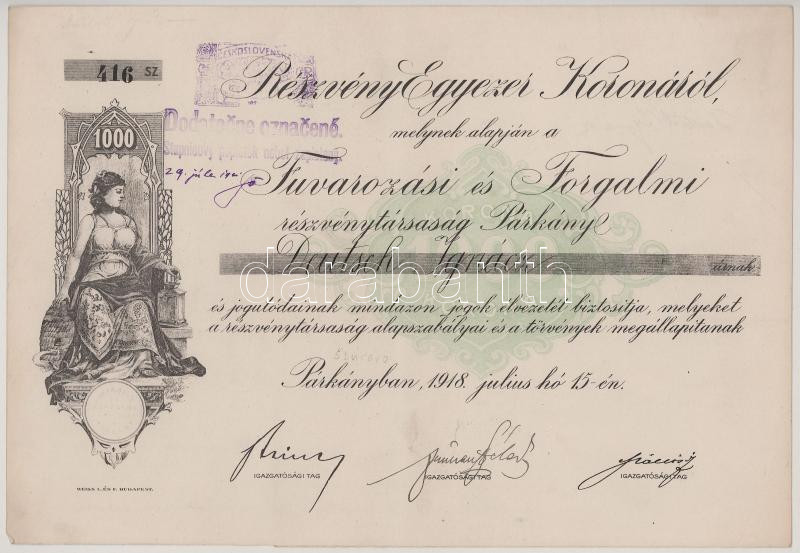 416 SZ
1000
ČESKOSLOVENSKÁ
Dodatečne označené.
29. júla
Részvény Egyezer Koronáról,
melynek alapján a
Fuvarozási és Forgalmi
részvénytársaság Párkány
Deutsch Ignácz úrnak
darabanth
és jogutódainak mindazon jogok élvezetét biztosítja, melyeket
a részvénytársaság alapszabályai és a törvények megállapítanak
Párkányban, 1918. július hó 15-én.
IGAZGATÓSÁGI TAG IGAZGATÓSÁGI TAG IGAZGATÓSÁGI TAG
WEISS L. ÉS F. BUDAPEST.